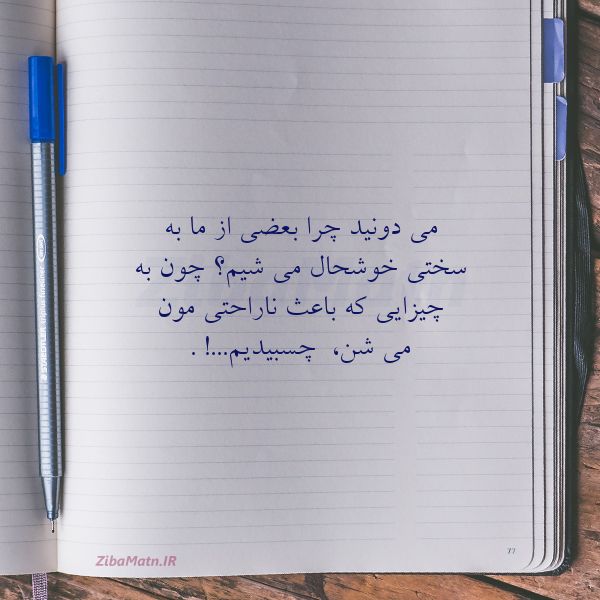 می دونید چرا بعضی از ما به
سختی خوشحال می شیم؟ چون به
چیزایی که باعث ناراحتی مون
می شن، چسبیدیم...! .
ZibaMatn.IR
77